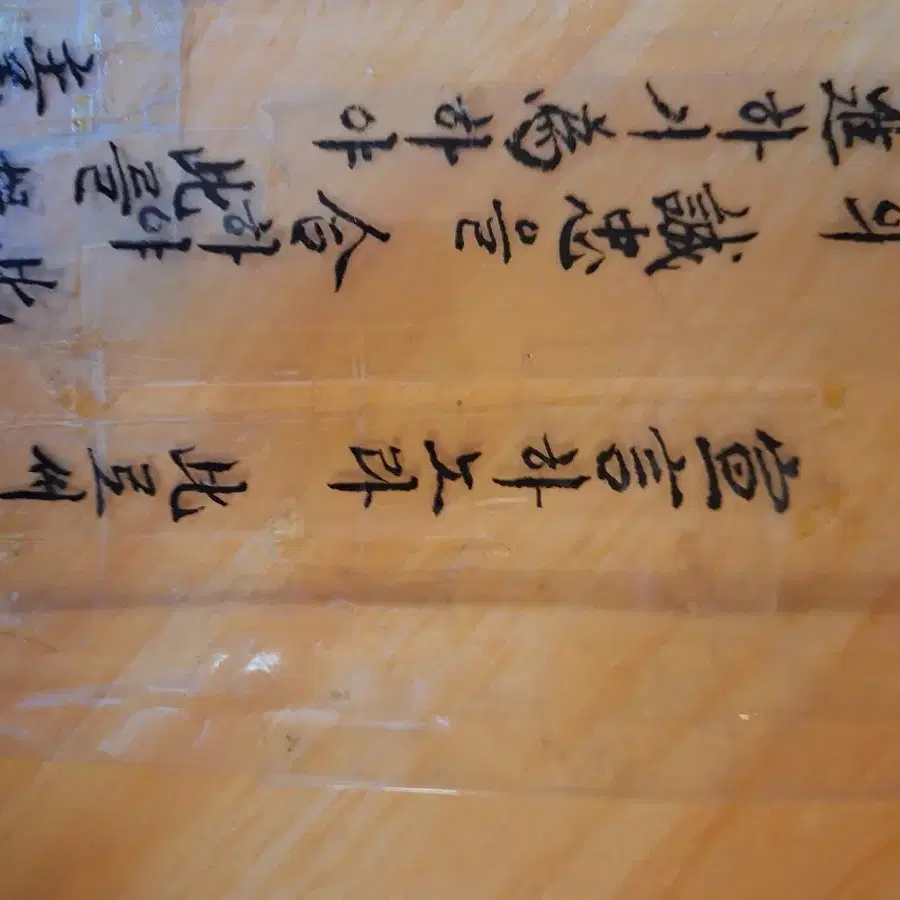 宣言하노라 此로써
의 誠忠을 合하야 此
進하기 爲하야 此를
主